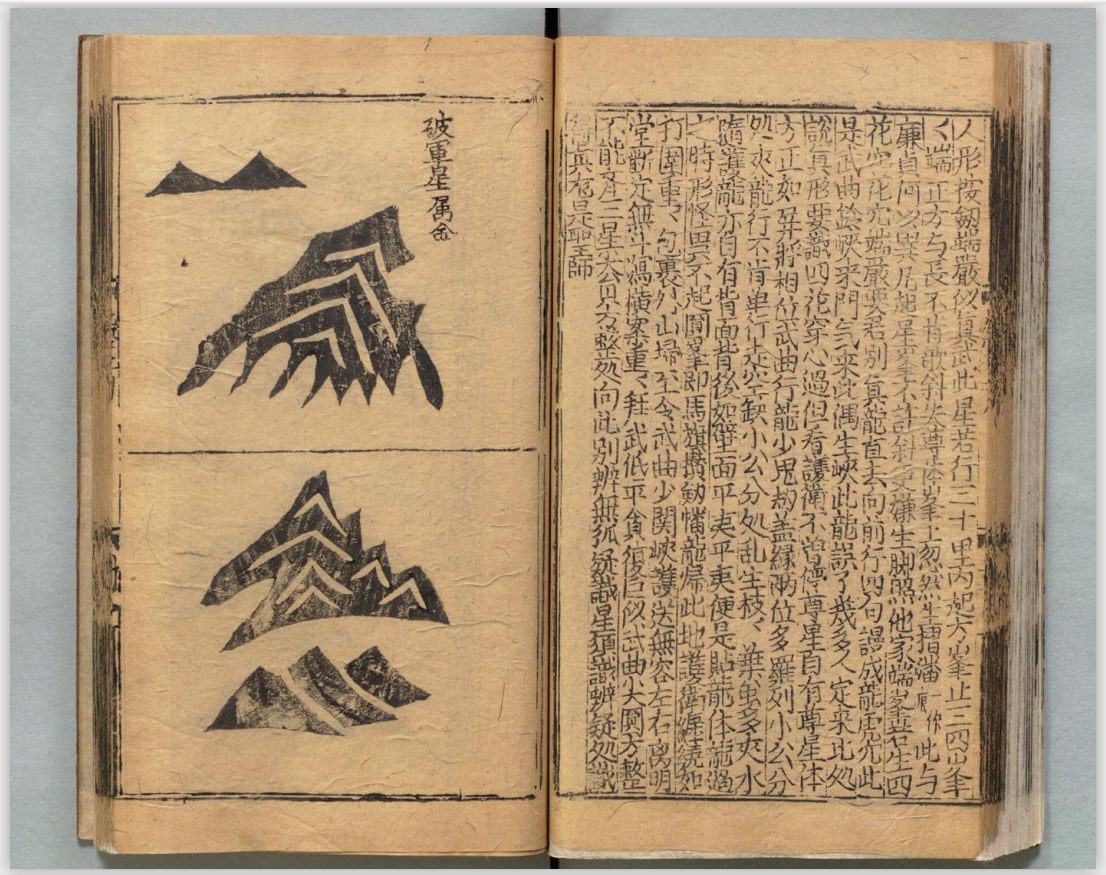 人形按劔端嚴似真武此星若行三十里內起六峯止三四峯
〱端正方与長不肯欹斜失尊体峯上忽然生摺潘此与
廉貞何以異凡起星峯不許斜更嫌生脚照他家端峯若生四
花穴花穴端嚴要君別真龍直去向前行四句謾成龍虎先此
是武曲峽来門气来此遇生峽此龍誤了幾多人定来此処
說真形要識四花穿心過但看護衛不曾停尊星自有尊星体
方正如昇將相位武曲行龍少鬼劫盖縁兩位多羅列小公分
処夹龍行不肯单行走空缺小公分処乱生枝〻葉虫多夾水
隨護龍亦自有背面背後如壁面平夷平夷便是貼龍体龍過
之時形怪異不起圓峯即馬旗攅劔幡龍帰此地護衛纒繞如
打圍重〻勾裹外山埽至令武曲少関峽護送無容左右离明
堂斷定無斗瀉横案重〻拜武低平貪復巨似武曲大圓方整
不能齐二星尖貝方整処向此別辨無狐疑識星須識辨疑処識
得真龍是聖師
破軍星属金